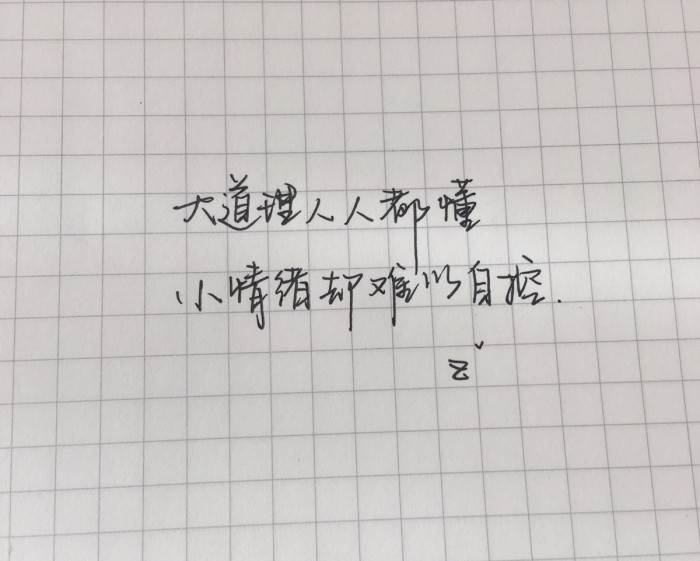 大道理人人都懂
小情绪却难以自控.